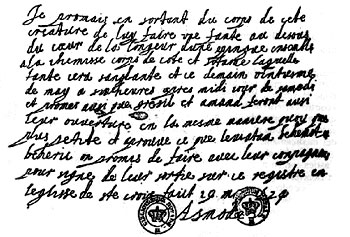 Je promais en sortant du corps de cete
creature de luy faire une fante au dessous
du cœur de la longeur d'une epingue ensemble
a la chemisse corps de cote et sotane laquelle
fante sera sanglante et ce demain vintiesme
de may a sinc heures apres midi jour de samedi
et promes aussi que gresil et amand feront aussi
leur ouverture en la mesme maniere
plus petite et aprouve ce que leviatam
beherie on promis de faire avec leur compagnon
pour signe de leur sortie sur ce registre en
leglise de ste croix faict 29 may 1629
Asmodee